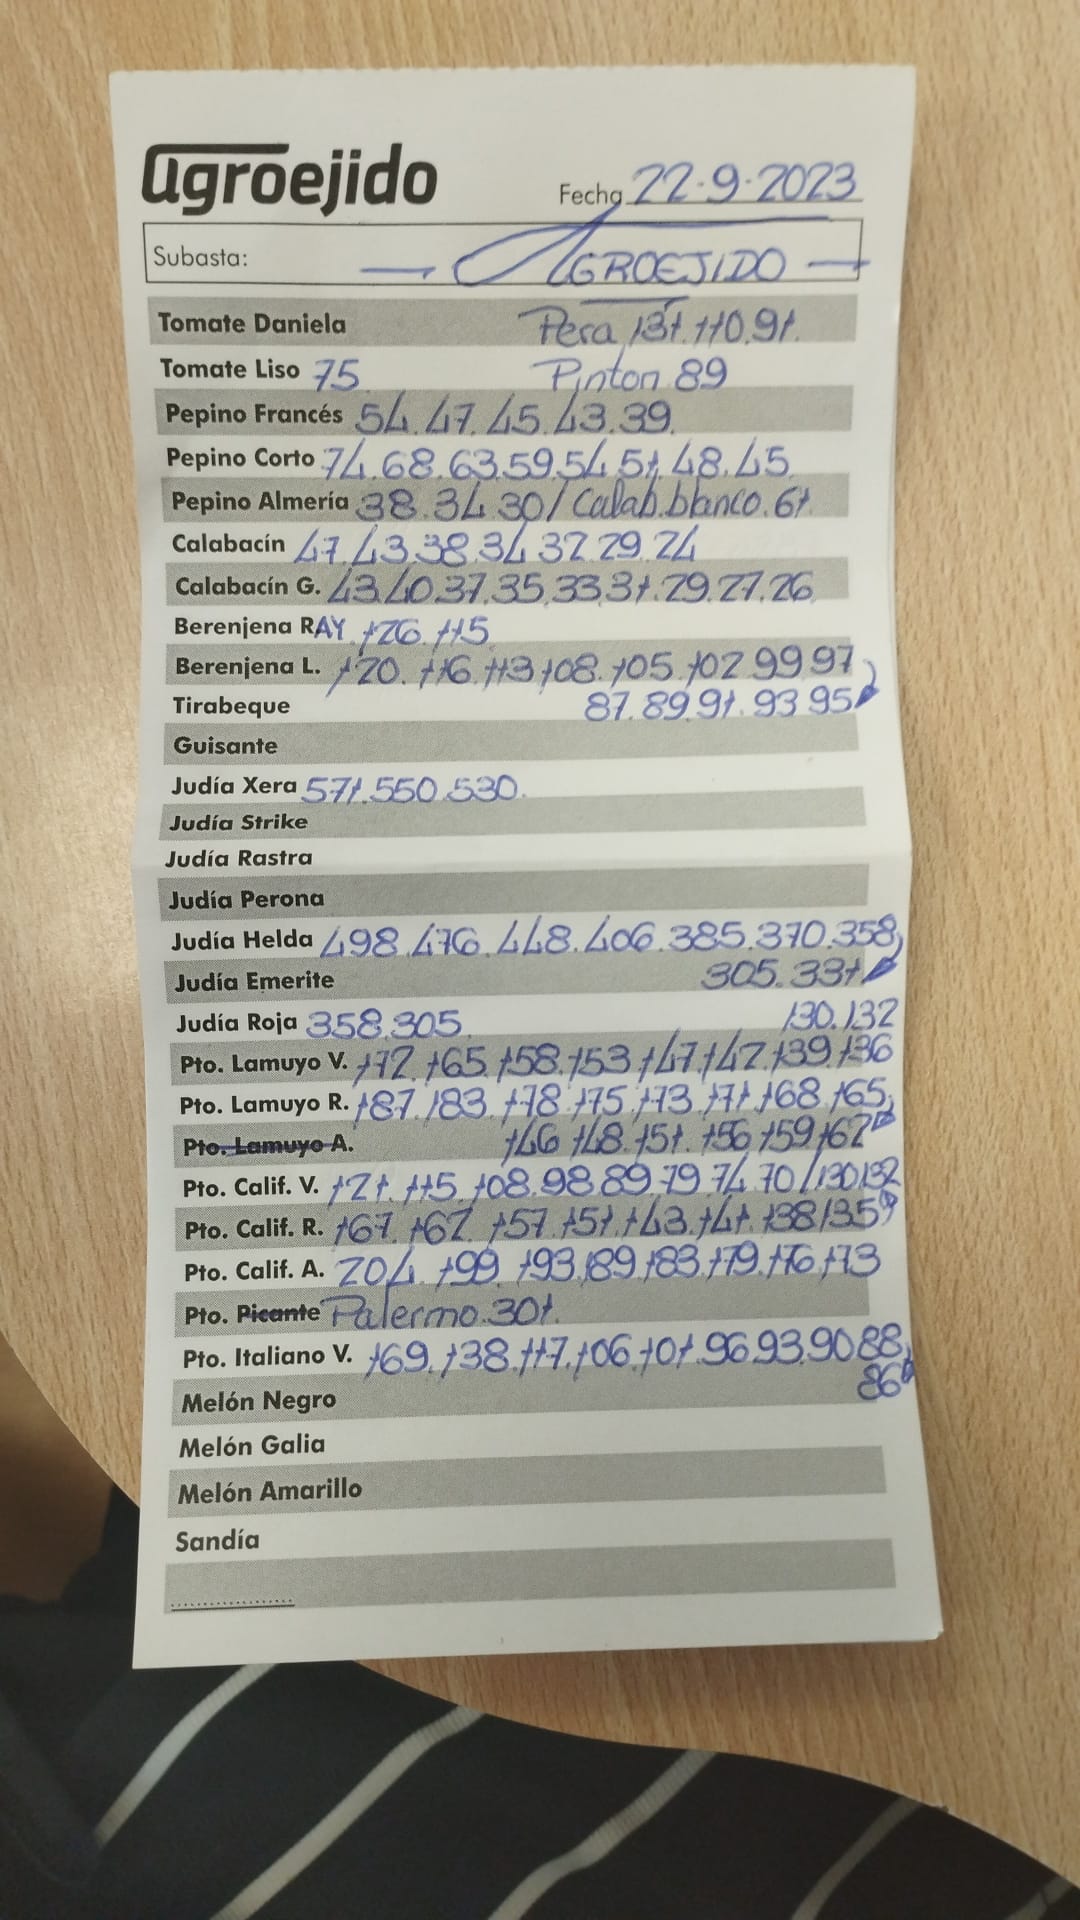 agroejido
Fecha 22-9-2023
Subasta: — AGROEJIDO —
Tomate Daniela Pera 131.110.91.
Tomate Liso 75 Pinton 89
Pepino Francés 54.47.45.43.39.
Pepino Corto 74.68.63.59.54.51.48.45
Pepino Almería 38.34.30/Calab.blanco.61.
Calabacín 47.43.38.34.32.29.24
Calabacín G. 43.40.37.35.33.31.29.27.26
Berenjena RAY. 126.115
Berenjena L. 120.116.113.108.105.102.99.97
Tirabeque 87.89.91.93.95
Guisante
Judía Xera 571.550.530.
Judía Strike
Judía Rastra
Judía Perona
Judía Helda 498.476.448.406.385.370.358
Judía Emerite 305.331
Judía Roja 358.305 130.132
Pto. Lamuyo V. 172.165.158.153.147.142.139.136
Pto. Lamuyo R. 187.183.178.175.173.171.168.165
Pto. Lamuyo A. 146.148.151.156.159.162
Pto. Calif. V. 121.115.108.98.89.79.74.70/130.132
Pto. Calif. R. 167.162.157.151.143.141.138.135
Pto. Calif. A. 204.199.193.189.183.179.176.173
Pto. Picante Palermo.301.
Pto. Italiano V. 169.138.117.106.101.96.93.90.88
86
Melón Negro
Melón Galia
Melón Amarillo
Sandía